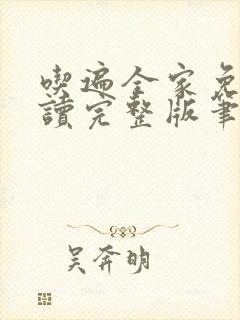 喫遍全家免
讀完整版筆
吴奔明